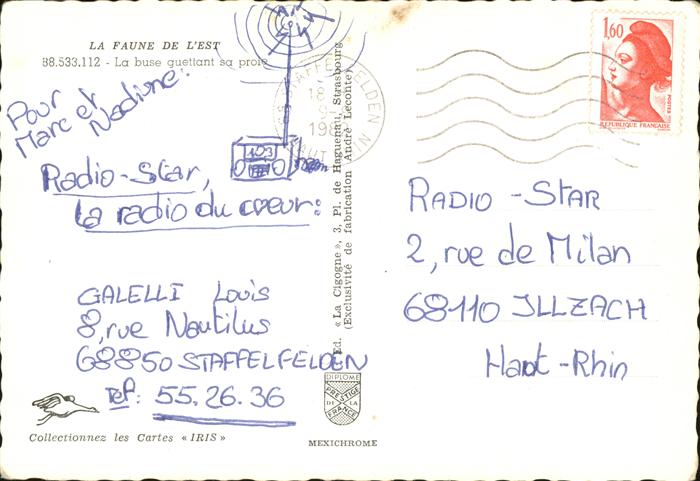 LA FAUNE DE L'EST
88.533.112 - La buse guettant sa proie
Pour
Marc et
Nadine:
103
Radio-Star,
la radio du cœur:
GALELLI Louis
8, rue Nautilus
68850 STAFFELFELDEN
Tél: 55.26.36
Collectionnez les Cartes « IRIS »
Ed. « La Cigogne », 3, Pl. de Haguenau, Strasbourg
(Exclusivité de fabrication André Leconte)
DIPLOME
PRESTIGE
DE LA
FRANCE
MEXICHROME
STAFFELFELDEN
18
198
HT RHIN
1,60
POSTES
REPUBLIQUE FRANÇAISE
RADIO-STAR
2, rue de Milan
68110 ILLZACH
Haut-Rhin